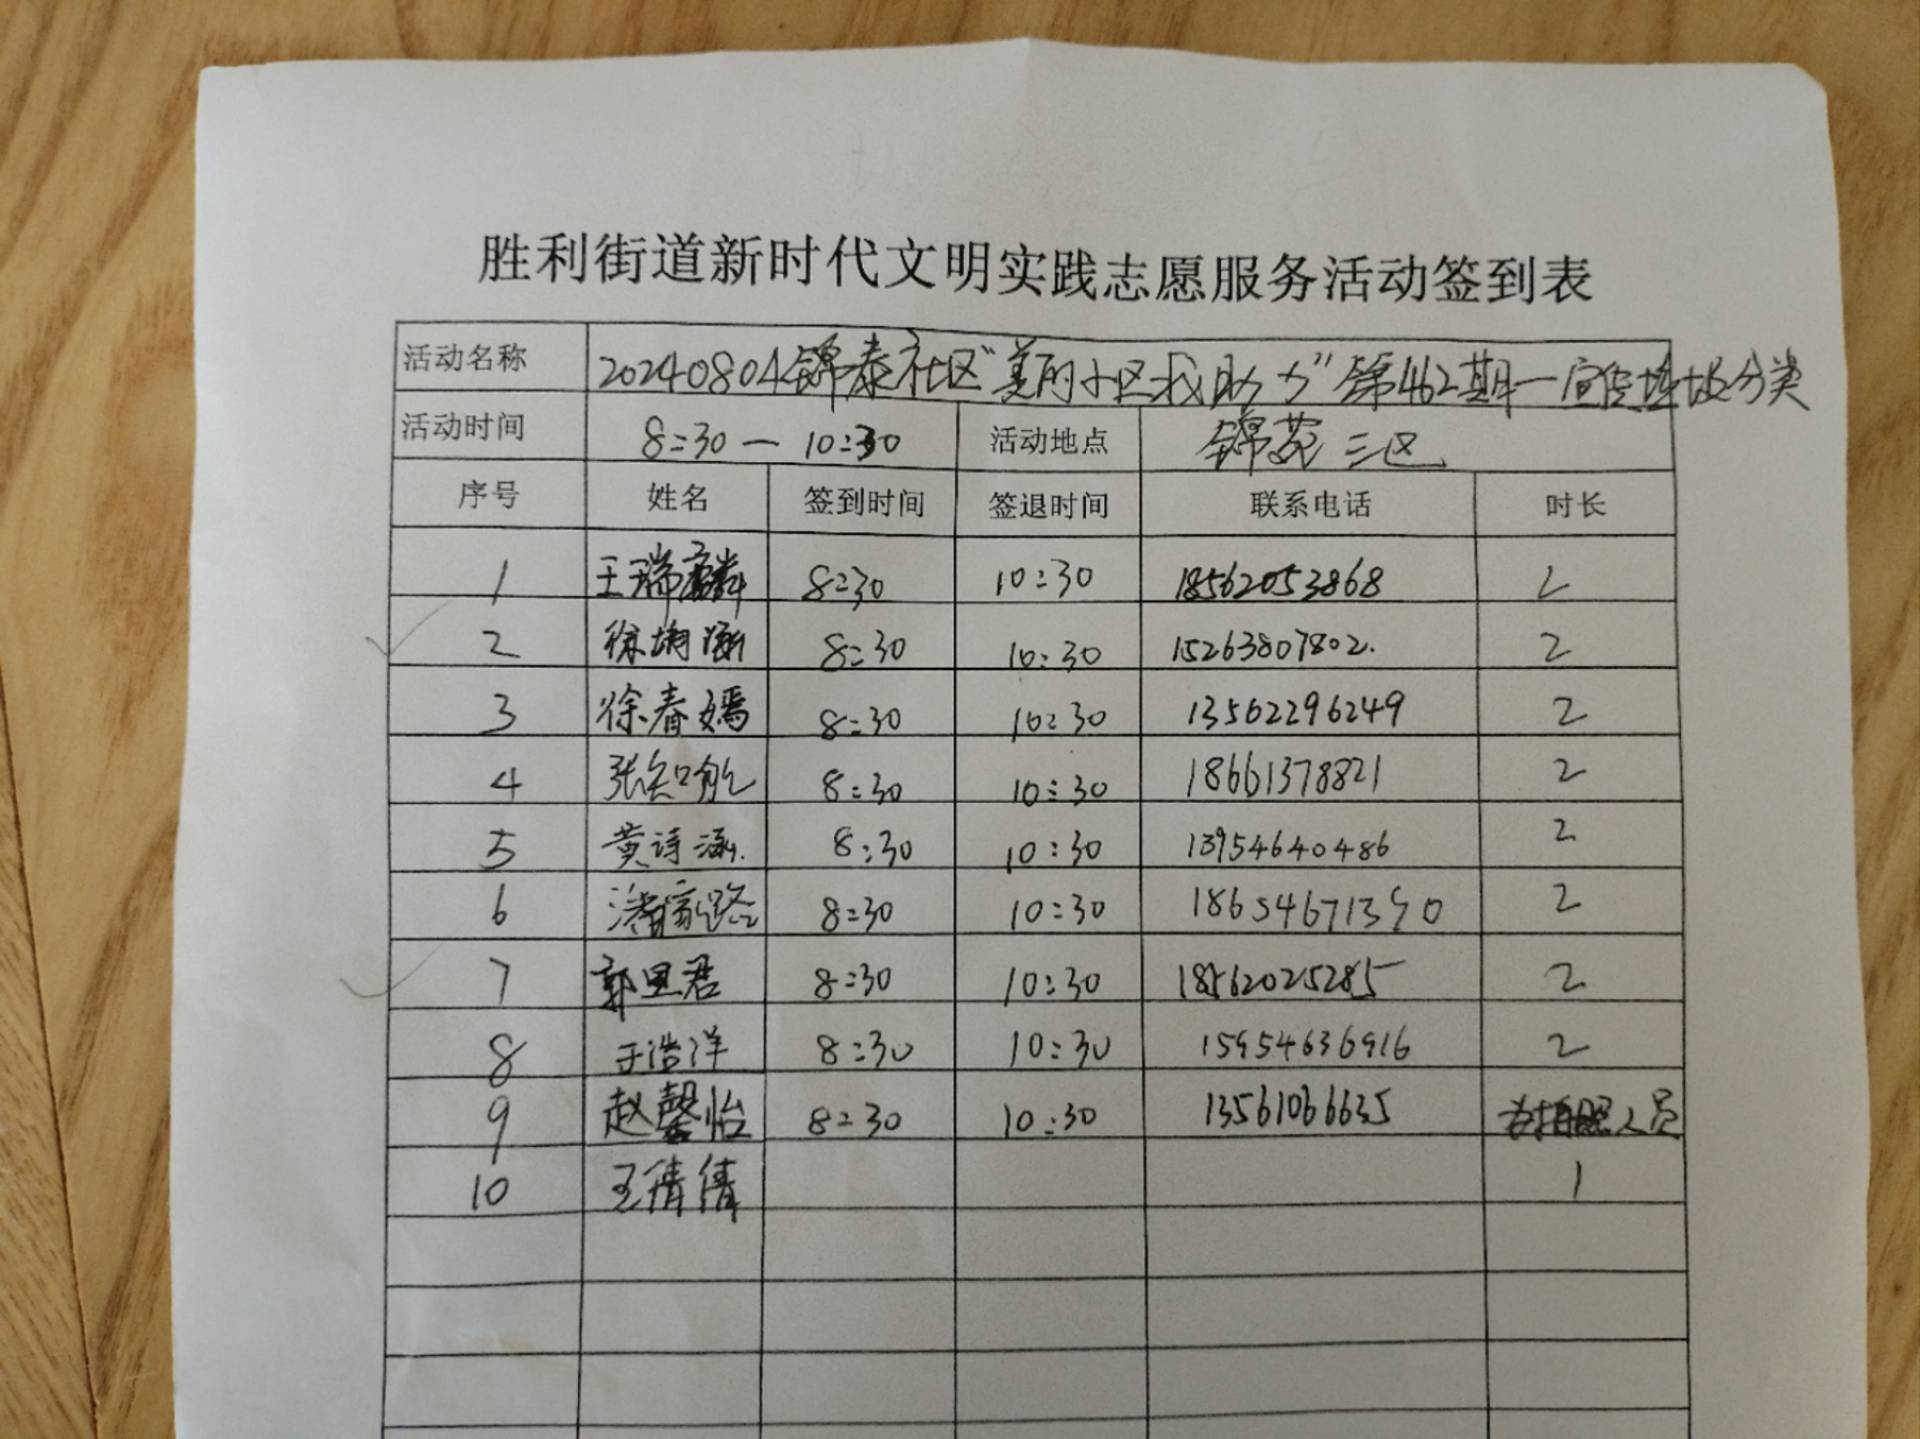 胜利街道新时代文明实践志愿服务活动签到表
活动名称 20240804锦泰社区“美丽小区我助力”第462期—宣传垃圾分类
活动时间 8:30—10:30 活动地点 锦苑三区
序号 姓名 签到时间 签退时间 联系电话 时长
1 王瑞麟 8:30 10:30 18562053868 2
2 徐 涵 8:30 10:30 15263807802. 2
3 徐春嫣 8:30 10:30 13562296249 2
4 张 8:30 10:30 18661378821 2
5 黄诗涵 8:30 10:30 13954640486 2
6 潘家路 8:30 10:30 18654671390 2
7 郭里君 8:30 10:30 18562025285 2
8 于浩洋 8:30 10:30 15954636916 2
9 赵馨怡 8:30 10:30 13561066635 拍照人员
10 王倩倩 1